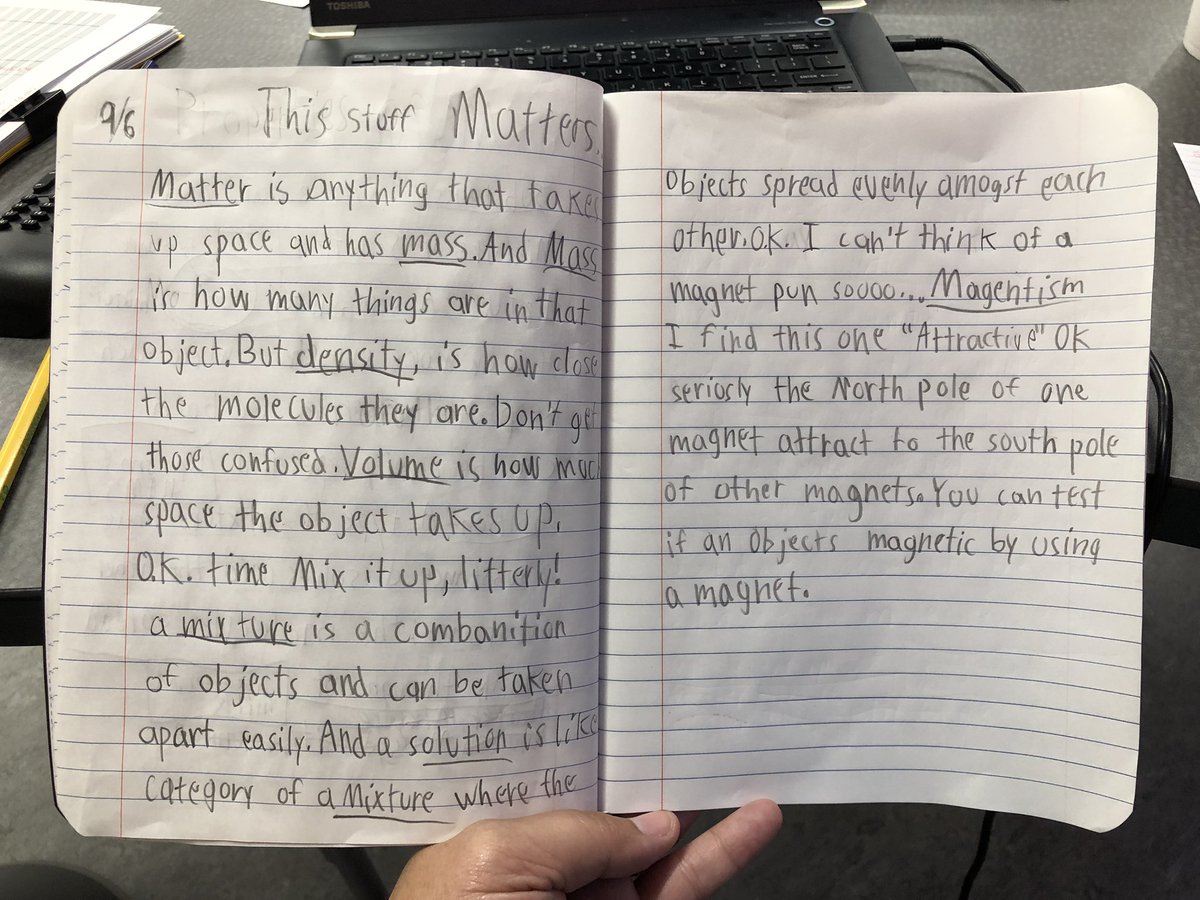 TOSHIBA
9/6 This stuff Matters.
Matter is anything that takes
up space and has mass. And Mass
is how many things are in that
object. But density, is how close
the molecules they are. Don't get
those confused. Volume is how much
space the object takes up.
O.K. time Mix it up, litterly!
a mixture is a combanition
of objects and can be taken
apart easily. And a solution is like
category of a Mixture where the
Objects spread evenly amogst each
other. O.K. I can't think of a
magnet pun soooo... Magentism
I find this one "Attractive" OK
seriosly the North pole of one
magnet attract to the south pole
of other magnets. You can test
if an Objects magnetic by using
a magnet.